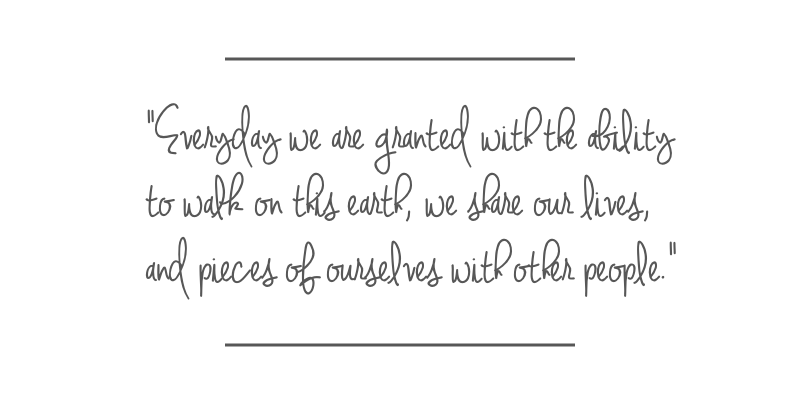 "Everyday we are granted with the ability
to walk on this earth, we share our lives,
and pieces of ourselves with other people."